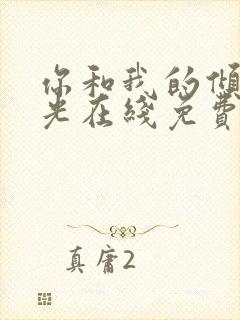 你和我的倾
光在线免费
真庸2